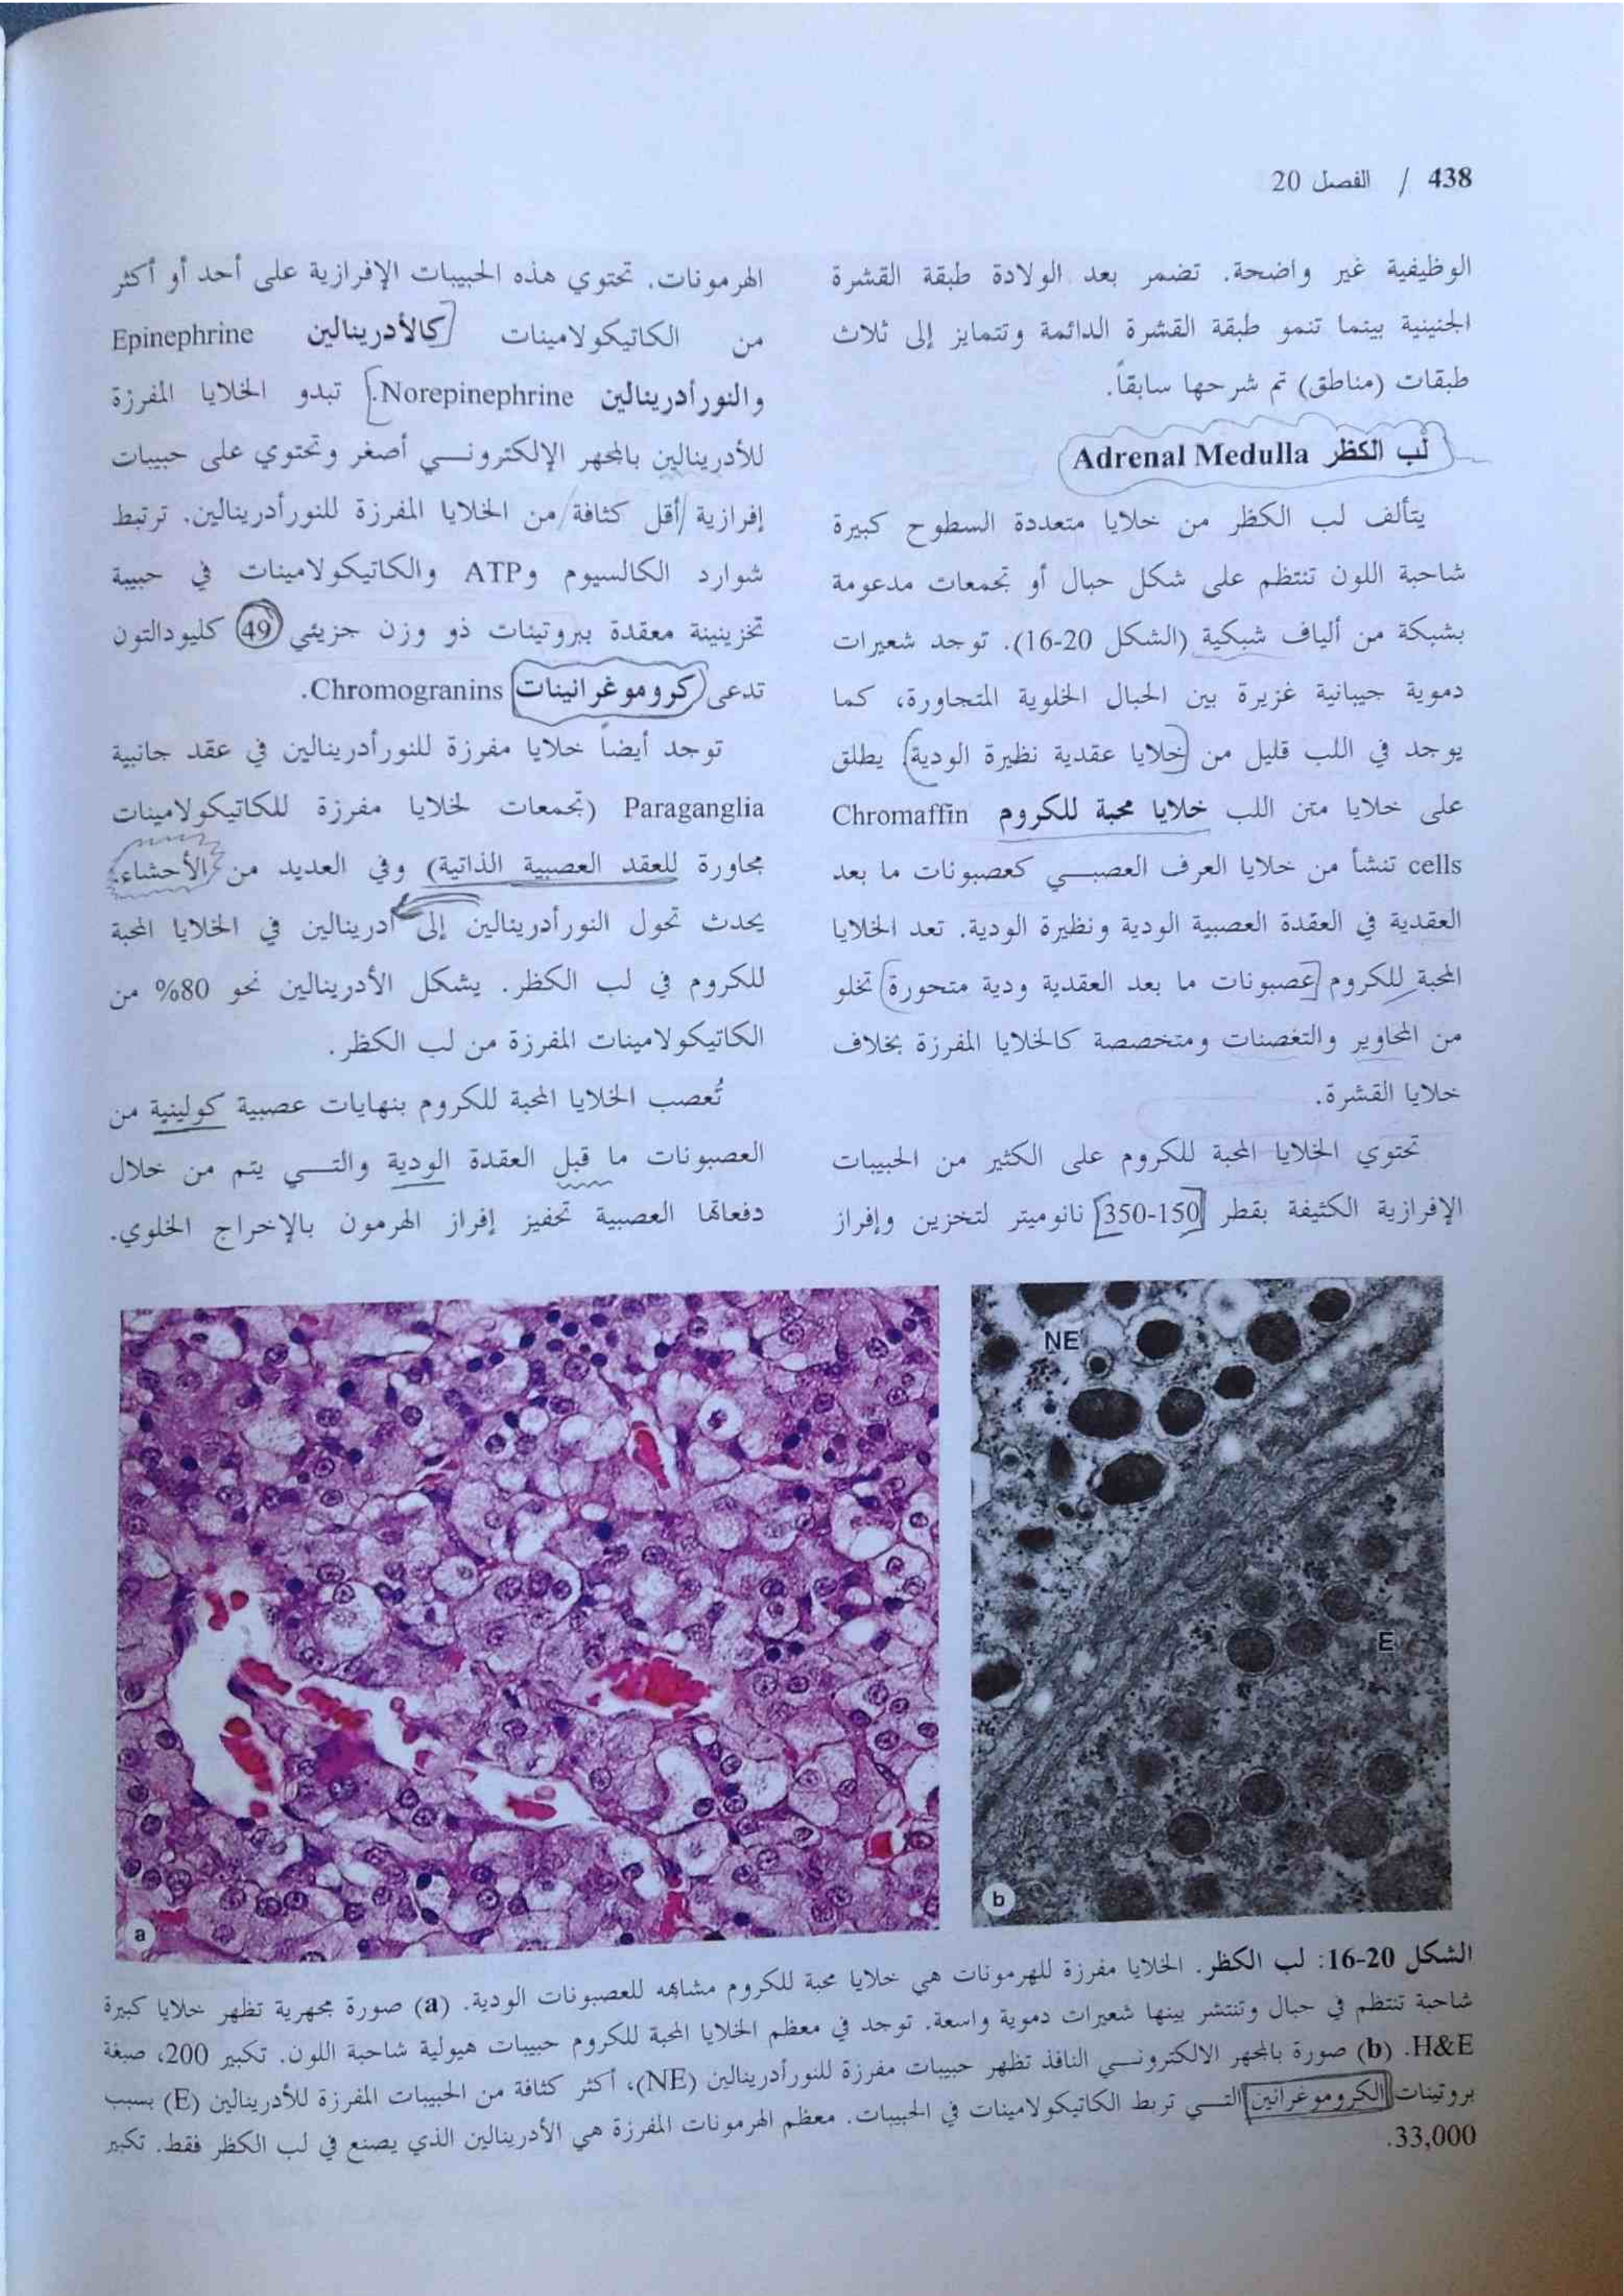 438 / الفصل 20
الوظيفية غير واضحة. تضمر بعد الولادة طبقة القشرة
الجنينية بينما تنمو طبقة القشرة الدائمة وتتمايز إلى ثلاث
طبقات (مناطق) تم شرحها سابقاً.
لب الكظر Adrenal Medulla
يتألف لب الكظر من خلايا متعددة السطوح كبيرة
شاحبة اللون تنتظم على شكل حبال أو تجمعات مدعومة
بشبكة من ألياف شبكية (الشكل 20-16). توجد شعيرات
دموية جيبانية غزيرة بين الحبال الخلوية المتجاورة، كما
يوجد في اللب قليل من خلايا عقدية نظيرة الودية. يطلق
على خلايا متن اللب خلايا محبة للكروم Chromaffin
cells تنشأ من خلايا العرف العصبـي كعصبونات ما بعد
العقدية في العقدة العصبية الودية ونظيرة الودية. تعد الخلايا
المحبة للكروم عصبونات ما بعد العقدية ودية متحورة تخلو
من المحاوير والتغصنات ومتخصصة كالخلايا المفرزة بخلاف
خلايا القشرة.
تحتوي الخلايا المحبة للكروم على الكثير من الحبيبات
الإفرازية الكثيفة بقطر 150-350 نانوميتر لتخزين وإفراز
الهرمونات. تحتوي هذه الحبيبات الإفرازية على أحد أو أكثر
من الكاتيكولامينات كالأدرينالين Epinephrine
والنورأدرينالين Norepinephrine. تبدو الخلايا المفرزة
للأدرينالين بالمجهر الإلكترونـي أصغر وتحتوي على حبيبات
إفرازية أقل كثافة من الخلايا المفرزة للنورأدرينالين. ترتبط
شوارد الكالسيوم وATP والكاتيكولامينات في حبيبة
تخزينينة معقدة ببروتينات ذو وزن جزيئي 49 كليودالتون
تدعى كروموغرانينات Chromogranins.
توجد أيضاً خلايا مفرزة للنورأدرينالين في عقد جانبية
Paraganglia (تجمعات لخلايا مفرزة للكاتيكولامينات
مجاورة للعقد العصبية الذاتية) وفي العديد من الأحشاء.
يحدث تحول النورأدرينالين إلى أدرينالين في الخلايا المحبة
للكروم في لب الكظر. يشكل الأدرينالين نحو 80% من
الكاتيكولامينات المفرزة من لب الكظر.
تُعصب الخلايا المحبة للكروم بنهايات عصبية كولينية من
العصبونات ما قبل العقدة الودية والتـي يتم من خلال
دفعاتها العصبية تحفيز إفراز الهرمون بالإخراج الخلوي.
NE
E
a
b
الشكل 20-16: لب الكظر. الخلايا مفرزة للهرمونات هي خلايا محبة للكروم مشابهه للعصبونات الودية. (a) صورة مجهرية تظهر خلايا كبيرة
شاحبة تنتظم في حبال وتنتشر بينها شعيرات دموية واسعة. توجد في معظم الخلايا المحبة للكروم حبيبات هيولية شاحبة اللون. تكبير 200، صبغة
H&E. (b) صورة بالمجهر الالكترونـي النافذ تظهر حبيبات مفرزة للنورأدرينالين (NE)، أكثر كثافة من الحبيبات المفرزة للأدرينالين (E) بسبب
بروتينات الكروموغرانين التـي تربط الكاتيكولامينات في الحبيبات. معظم الهرمونات المفرزة هي الأدرينالين الذي يصنع في لب الكظر فقط. تكبير
33,000.